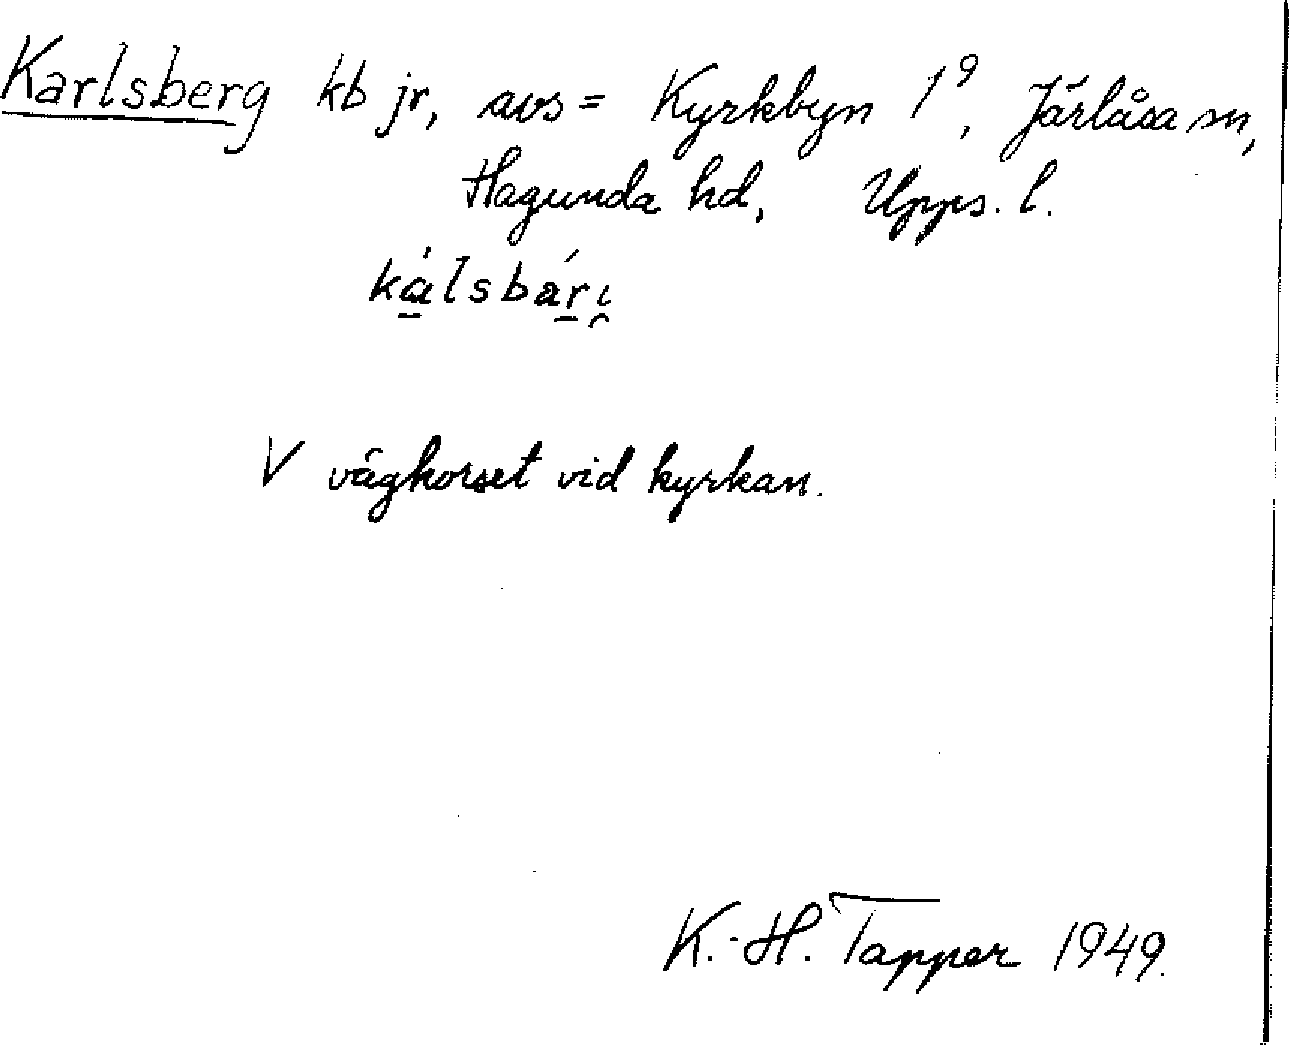 Karlsberg kb jr, avs = Kyrkbyn 1⁹, Järlåsa sn,
Hagunda hd, Upps. l.
kálsbári̯
V vägkorset vid kyrkan.
K.-H. Tapper 1949.